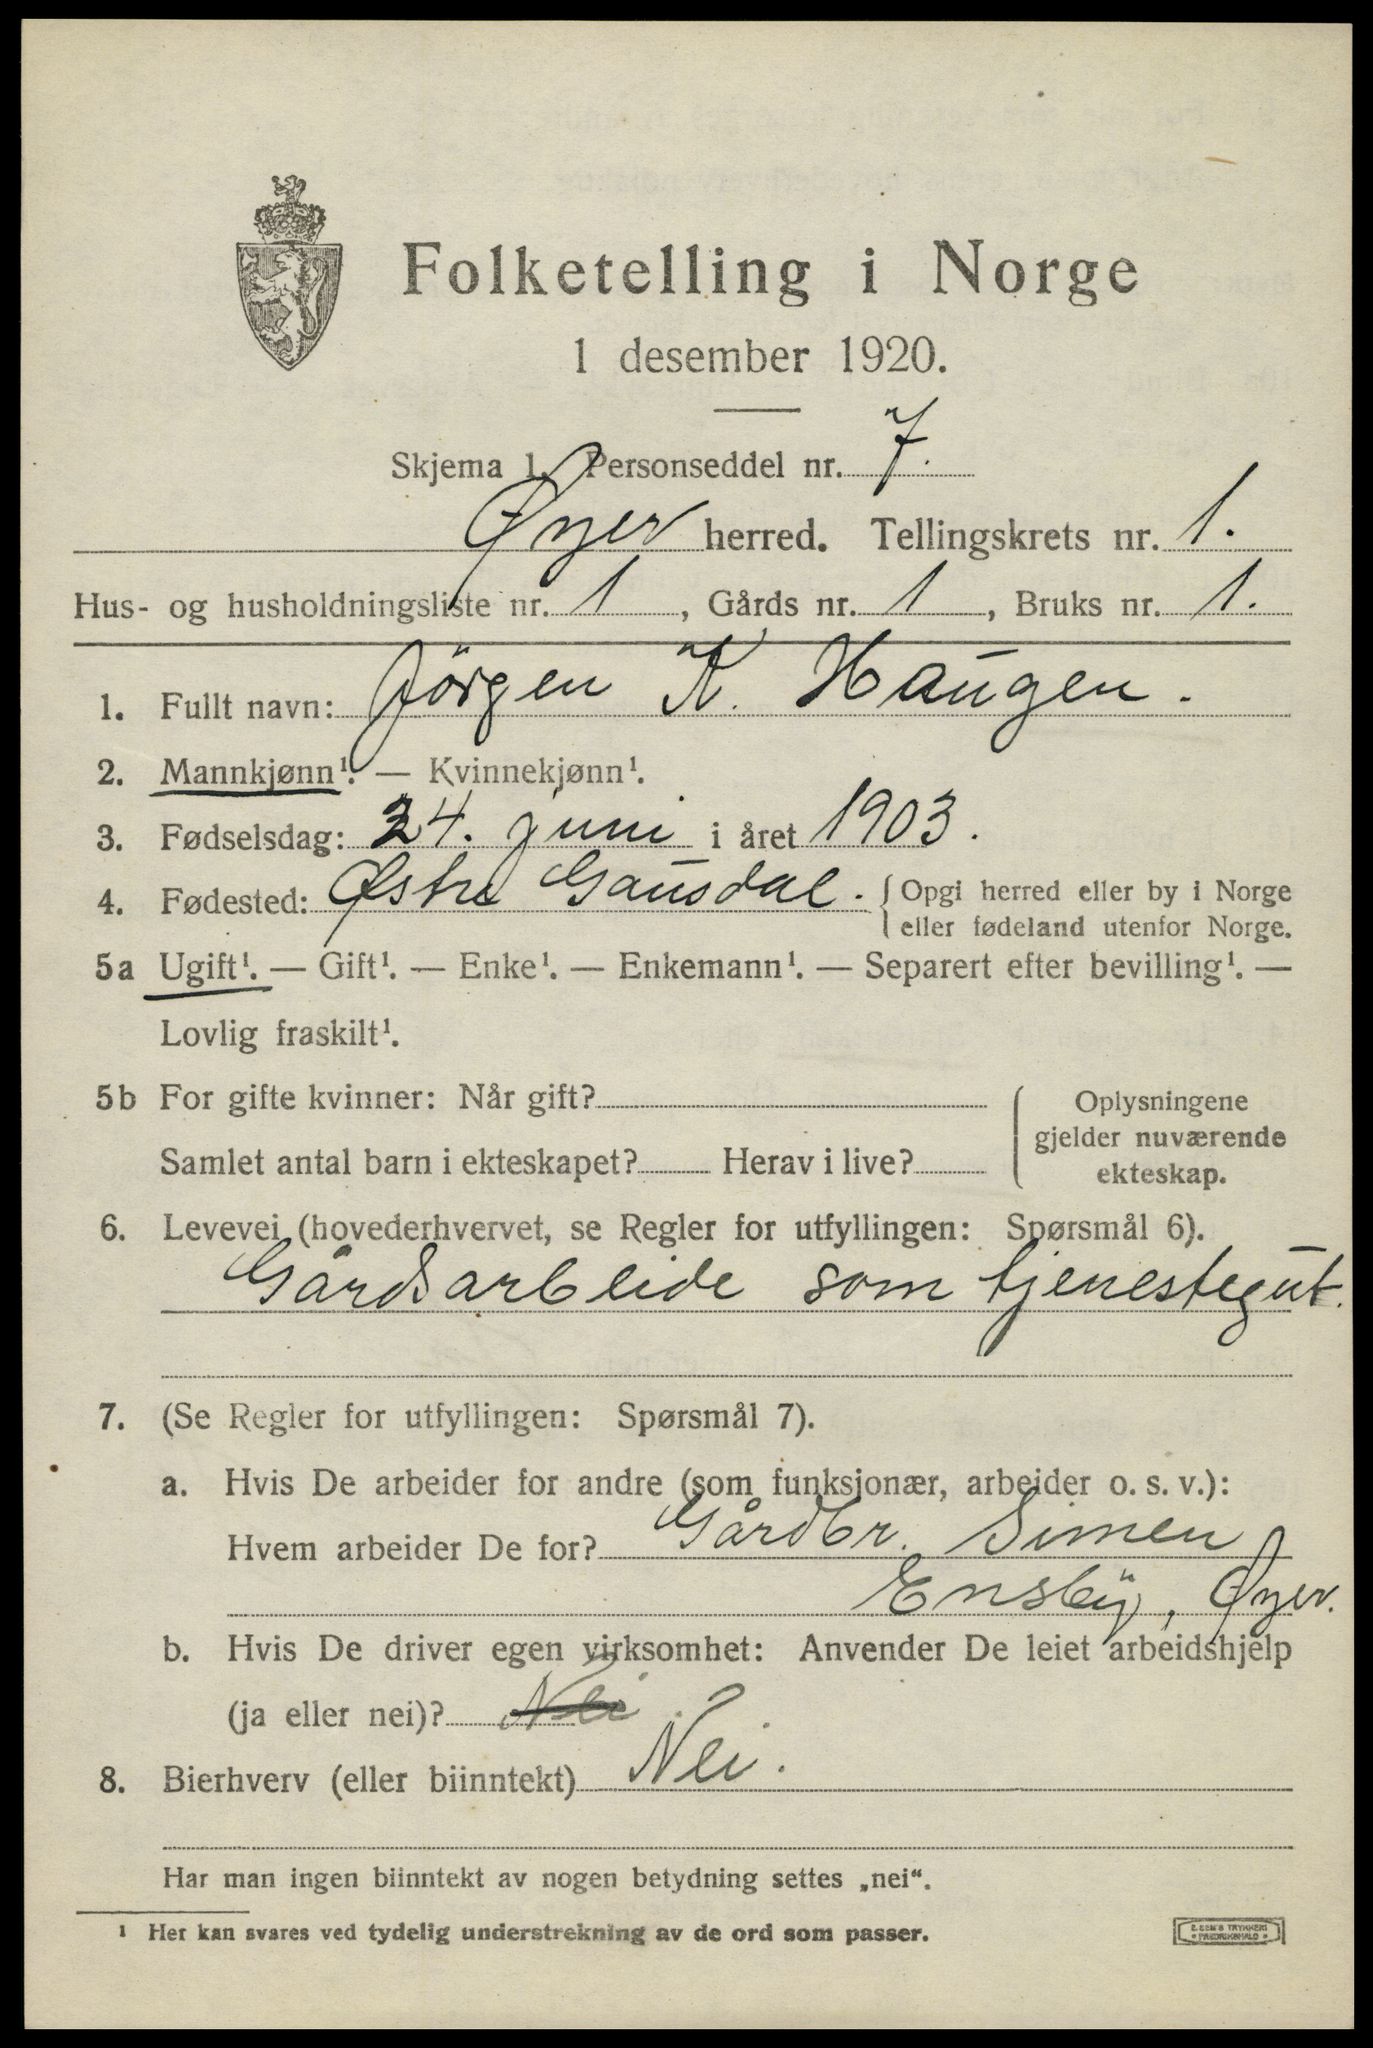 Folketelling i Norge
1 desember 1920.
Skjema 1. Personseddel nr. 7.
Øyer herred. Tellingskrets nr. 1.
Hus- og husholdningsliste nr. 1, Gårds nr. 1, Bruks nr. 1.
1. Fullt navn: Jörgen K. Haugen.
2. Mannkjønn¹. — Kvinnekjønn¹.
3. Fødselsdag: 24. juni i året 1903.
4. Fødested: Østre Gausdal. { Opgi herred eller by i Norge
eller fødeland utenfor Norge.
5a Ugift¹. — Gift¹. — Enke¹. — Enkemann¹. — Separert efter bevilling¹. —
Lovlig fraskilt¹.
5b For gifte kvinner: Når gift? Oplysningene
gjelder nuværende
Samlet antal barn i ekteskapet? Herav i live? ekteskap.
6. Levevei (hovederhvervet, se Regler for utfyllingen: Spørsmål 6).
Gårdsarbeide som tjenestegut.
7. (Se Regler for utfyllingen: Spørsmål 7).
a. Hvis De arbeider for andre (som funksjonær, arbeider o. s. v.):
Hvem arbeider De for? Gårdbr. Simen
Ensby, Øyer.
b. Hvis De driver egen virksomhet: Anvender De leiet arbeidshjelp
(ja eller nei)? Nei
8. Bierhverv (eller biinntekt) Nei.
Har man ingen biinntekt av nogen betydning settes „nei“.
¹ Her kan svares ved tydelig understrekning av de ord som passer.
E. SEM'S TRYKKERI
FREDRIKSHALD